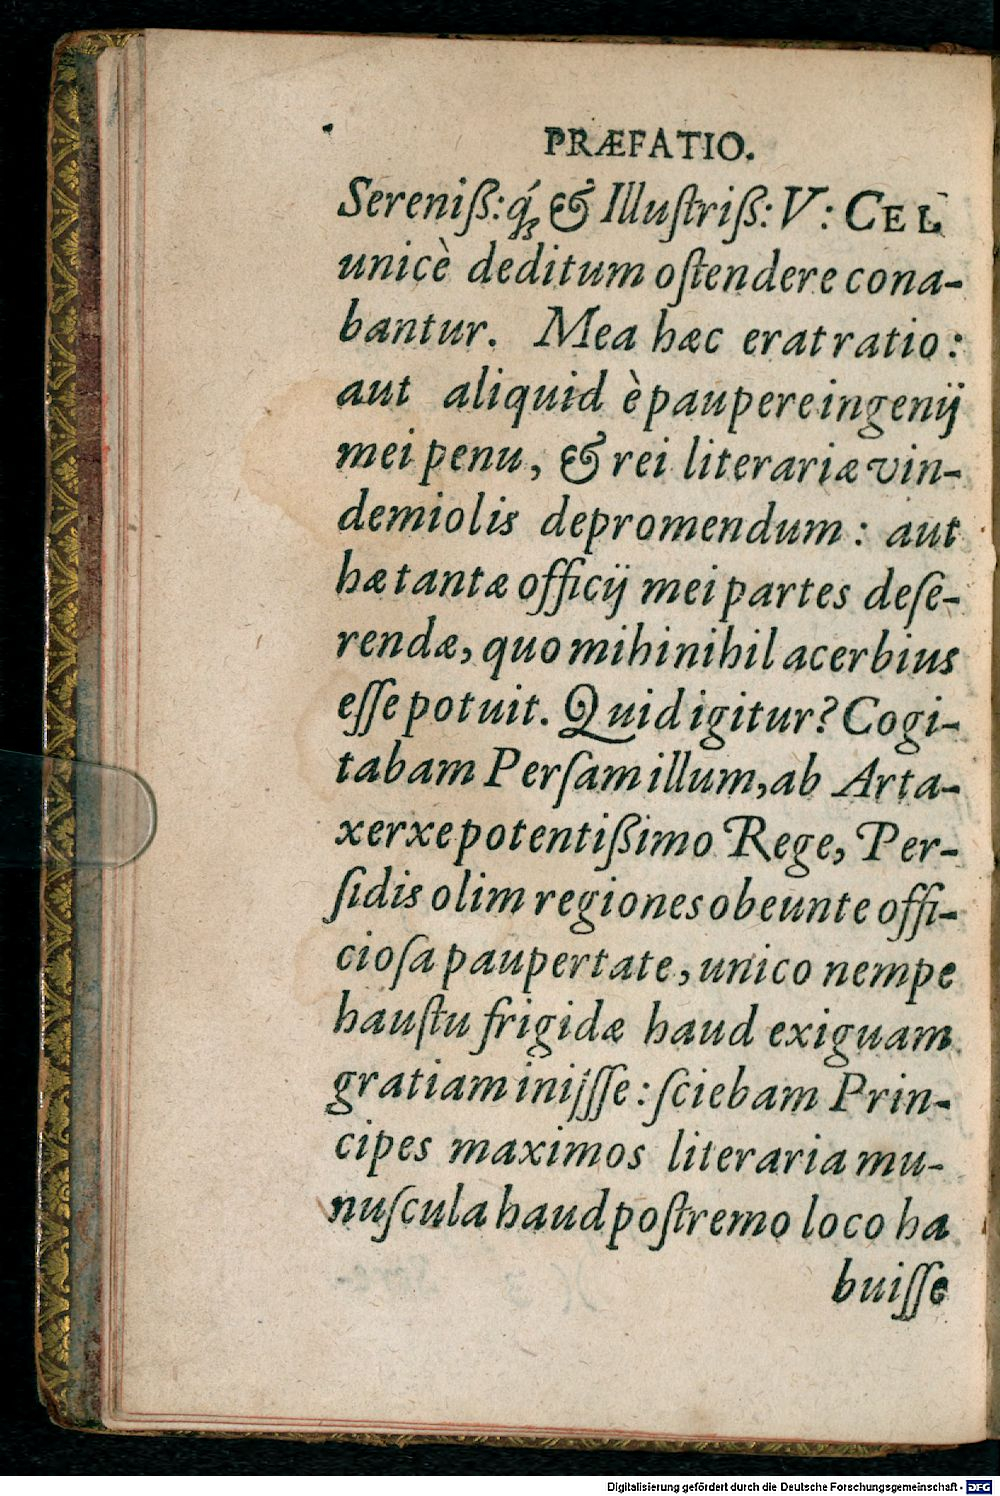 PRÆFATIO.
Sereniß: q́ꝫ & Illuſtriß: V: CEL
unicè deditum oſtendere cona-
bantur. Mea hæc erat ratio:
aut aliquid è paupere ingenij
mei penu, & rei literariæ vin-
demiolis depromendum: aut
hæ tantæ officij mei partes deſe-
rendæ, quo mihi nihil acerbius
eſſe potuit. Quid igitur? Cogi-
tabam Perſam illum, ab Arta-
xerxe potentißimo Rege, Per-
ſidis olim regiones obeunte offi-
cioſa paupertate, unico nempe
hauſtu frigidæ haud exiguam
gratiam inijſſe: ſciebam Prin-
cipes maximos literaria mu-
nuſcula haud poſtremo loco ha
buiſſe
Digitalisierung gefördert durch die Deutsche Forschungsgemeinschaft - DFG